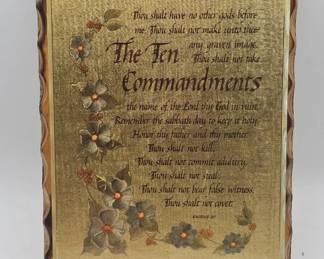 Thou shalt have no other gods before
me. Thou shalt not make unto thee
any graven image.
The Ten
Thou shalt not take
Commandments
the name of the Lord thy God in vain.
Remember the sabbath day to keep it holy.
Honor thy father and thy mother.
Thou shalt not kill.
Thou shalt not commit adultery.
Thou shalt not steal.
Thou shalt not bear false witness.
Thou shalt not covet.